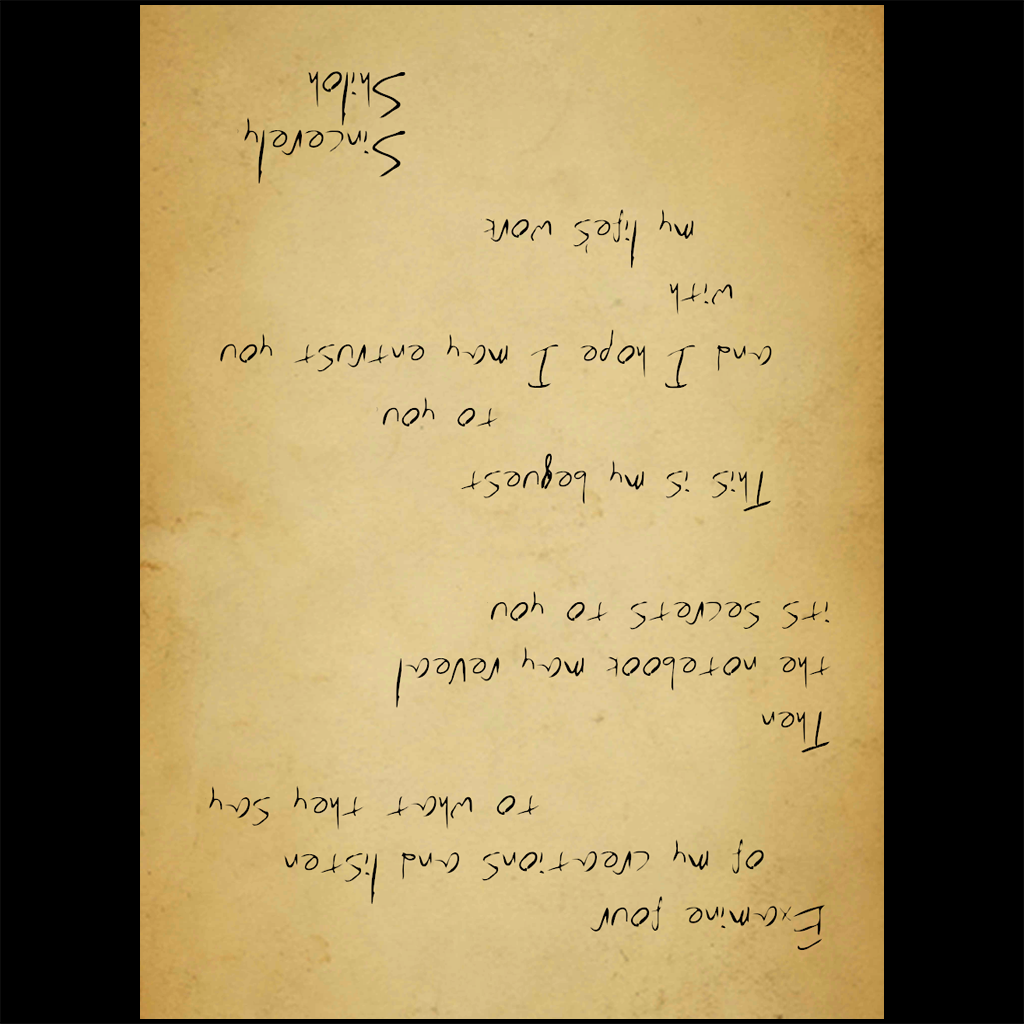 Examine four
of my creations and listen
to what they say
Then
the notebook may reveal
its secrets to you
This is my bequest
to you
and I hope I may entrust you
with
my life's work
Sincerely
Shiloh